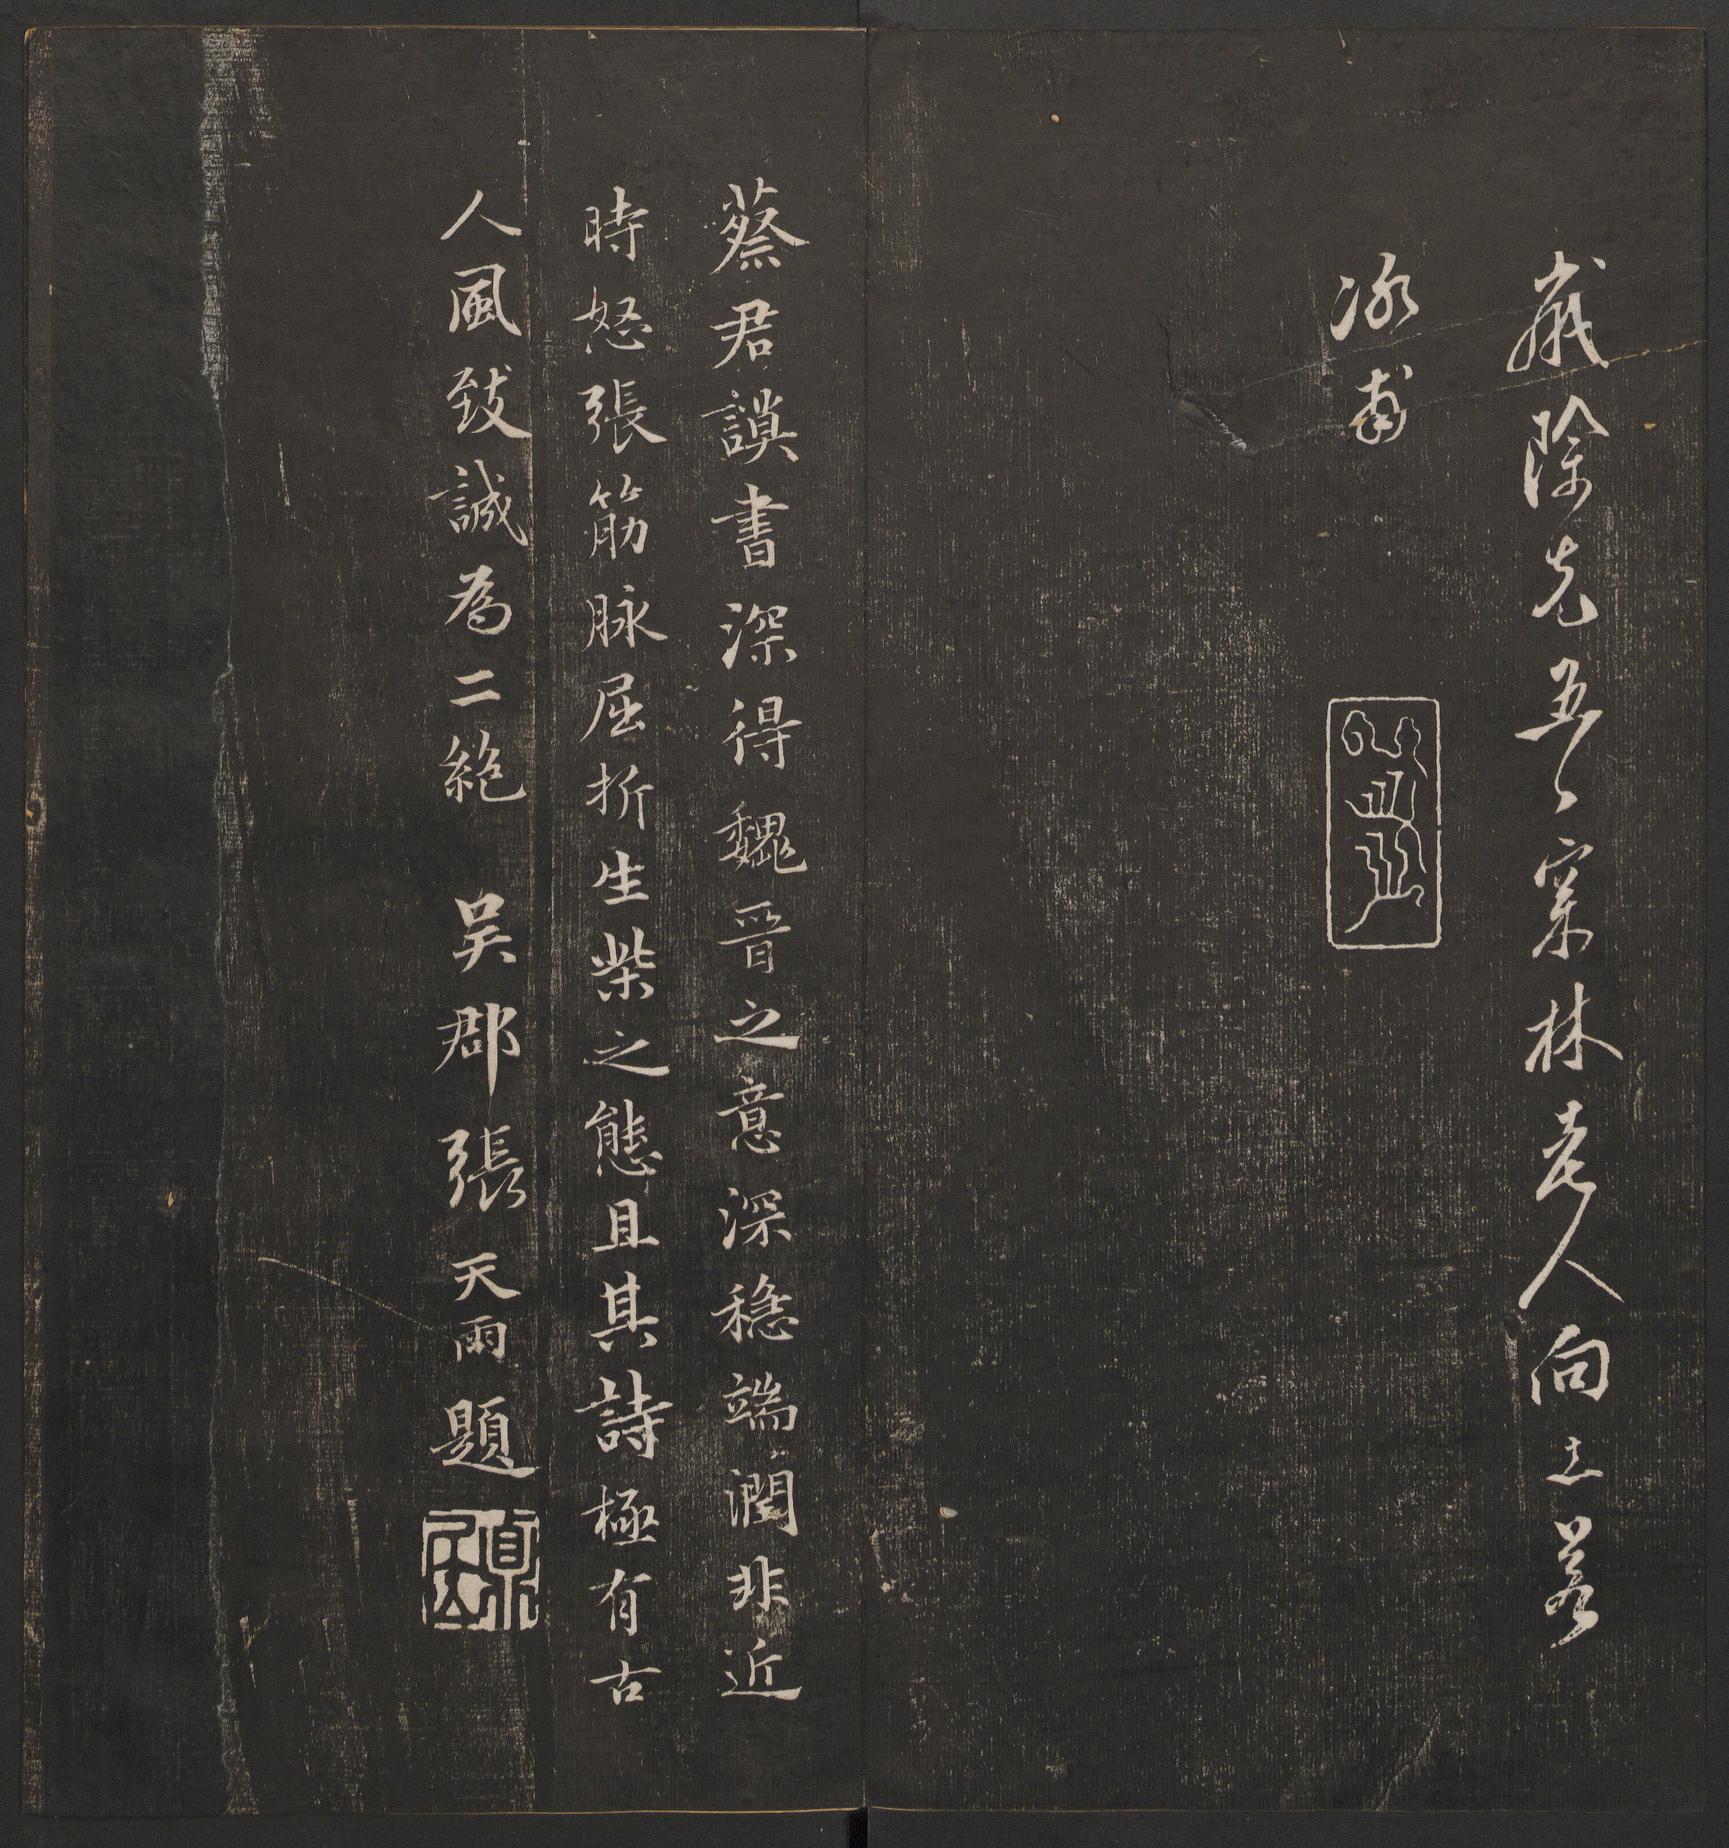 歲除先五日林老人向若
冰甫
蔡君謨書深得魏晉之意深穩端潤非近
時怒張筋脉屈折生柴之態且其詩極有古
人風致誠為二絕 吳郡張天雨題